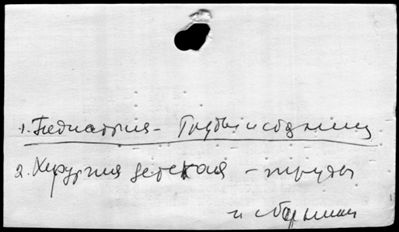 1. Педиатрия - Труды и сборники
2. Хирургия детская - труды
и сборники